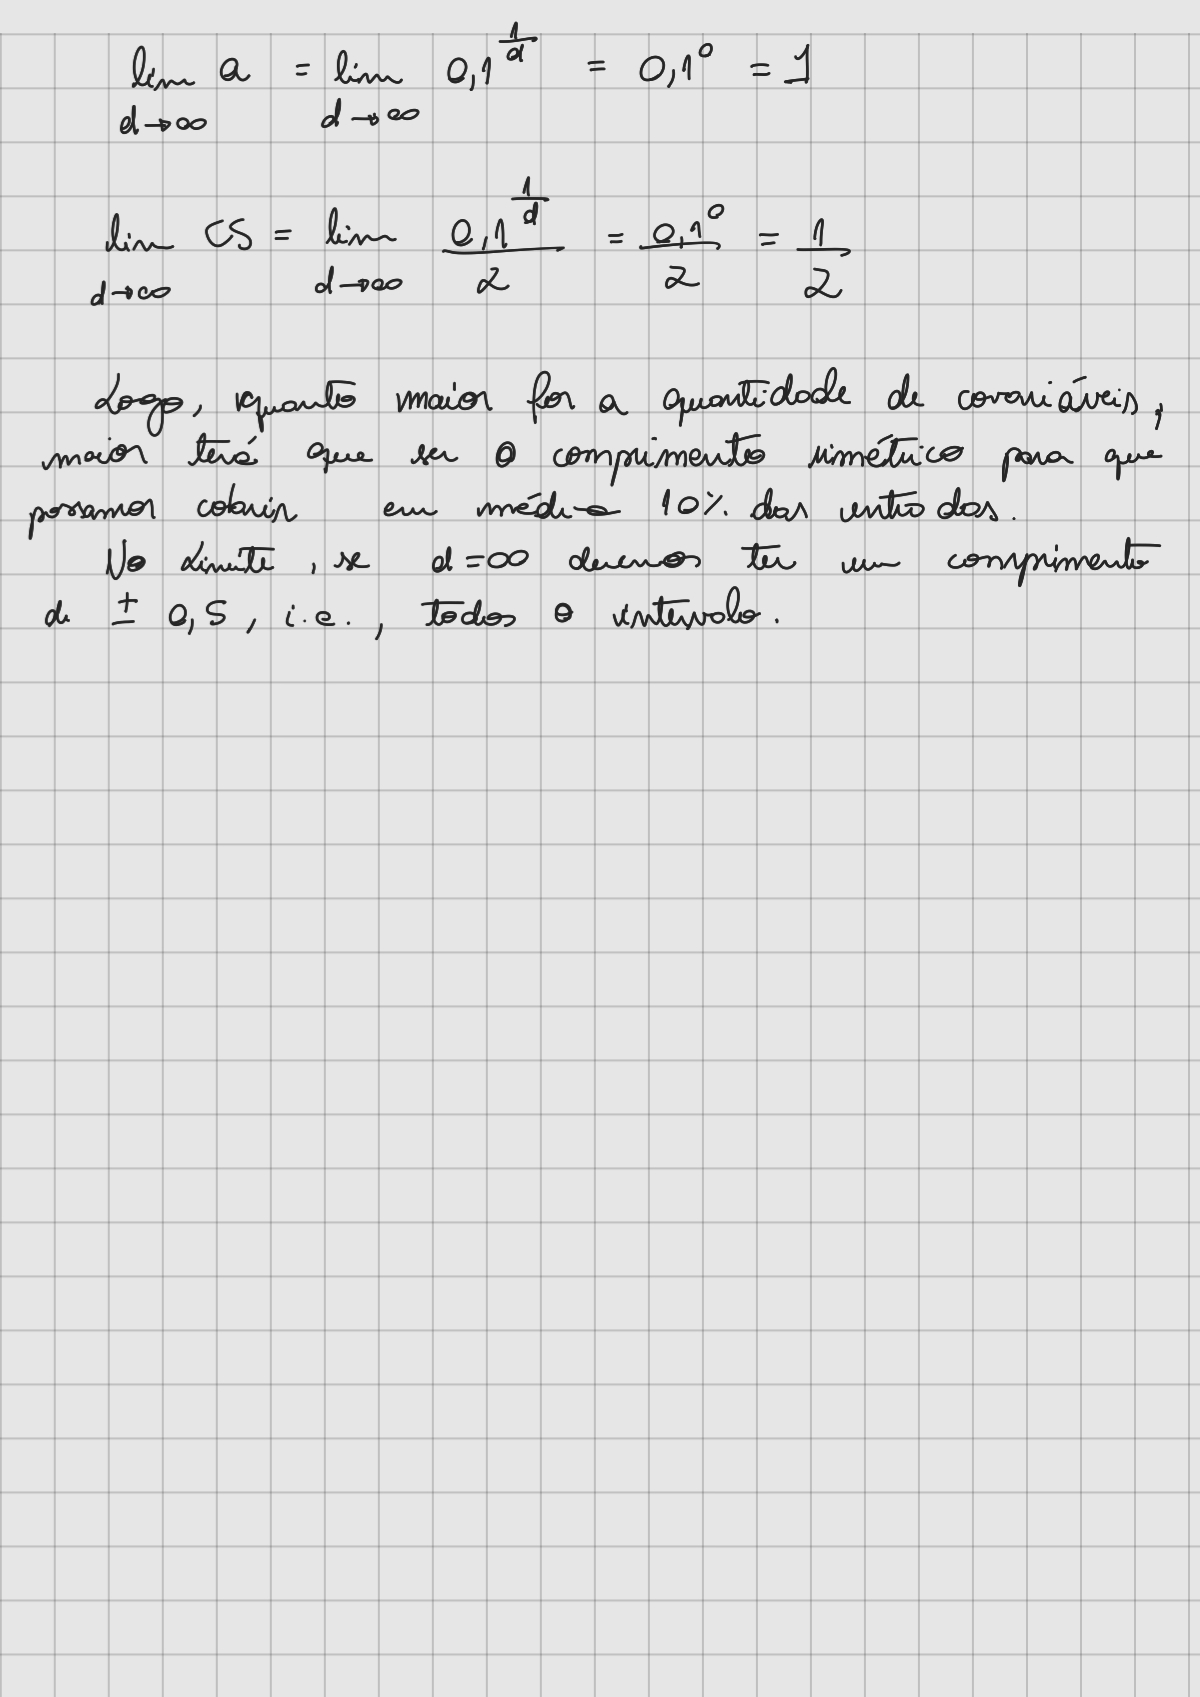 lim a = lim 0,1^(1/d) = 0,1^0 = 1
d→∞ d→∞
lim CS = lim 0,1^(1/d)/2 = 0,1^0/2 = 1/2
d→∞ d→∞
Logo, quanto maior for a quantidade de covariáveis,
maior terá que ser o comprimento simétrico para que
possamos cobrir em média 10% dos entrodos.
No Limite, se d=∞ devemos ter um comprimento
de ± 0,5, i.e., todos o intervalo.